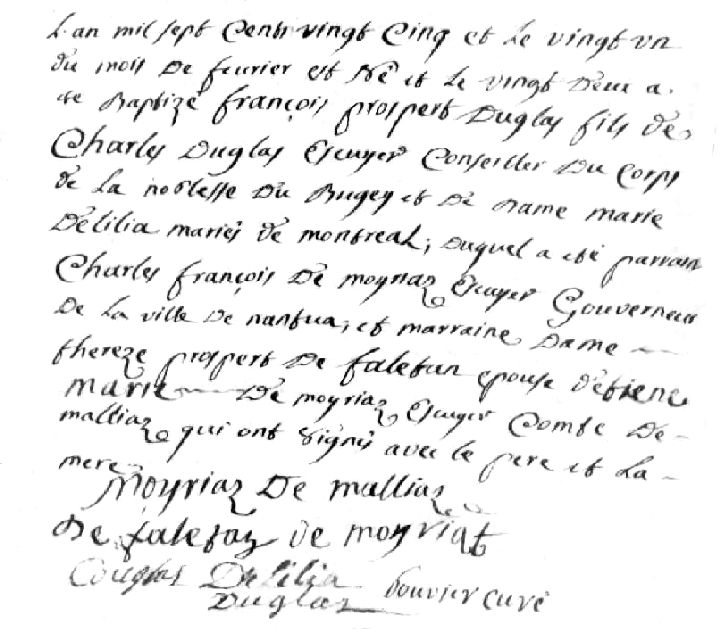 L'an mil sept Cents vingt Cinq et Le vingt un
du mois De feurier est Né et Le vingt Deux a
ete Baptizé françois prospert Duglas fils de
Charles Duglas Escuyer Conseiller Du Corps
de La noblesse Du Bugey et De Dame marie
Delilia mariés de montreal; Duquel a été parrain
Charles françois De moyriaz Escuyer Gouverneur
De La ville De nantua, et marraine Dame
thereze prospert De faletan epouse d'etiene
marie De moyriaz Escuyer Comte De
malliaz qui ont signés avec le pere et La
mere
Moyriaz De malliaz
De faletaz de moyriat
Couglas Delilia
Duglaz bouvier curé